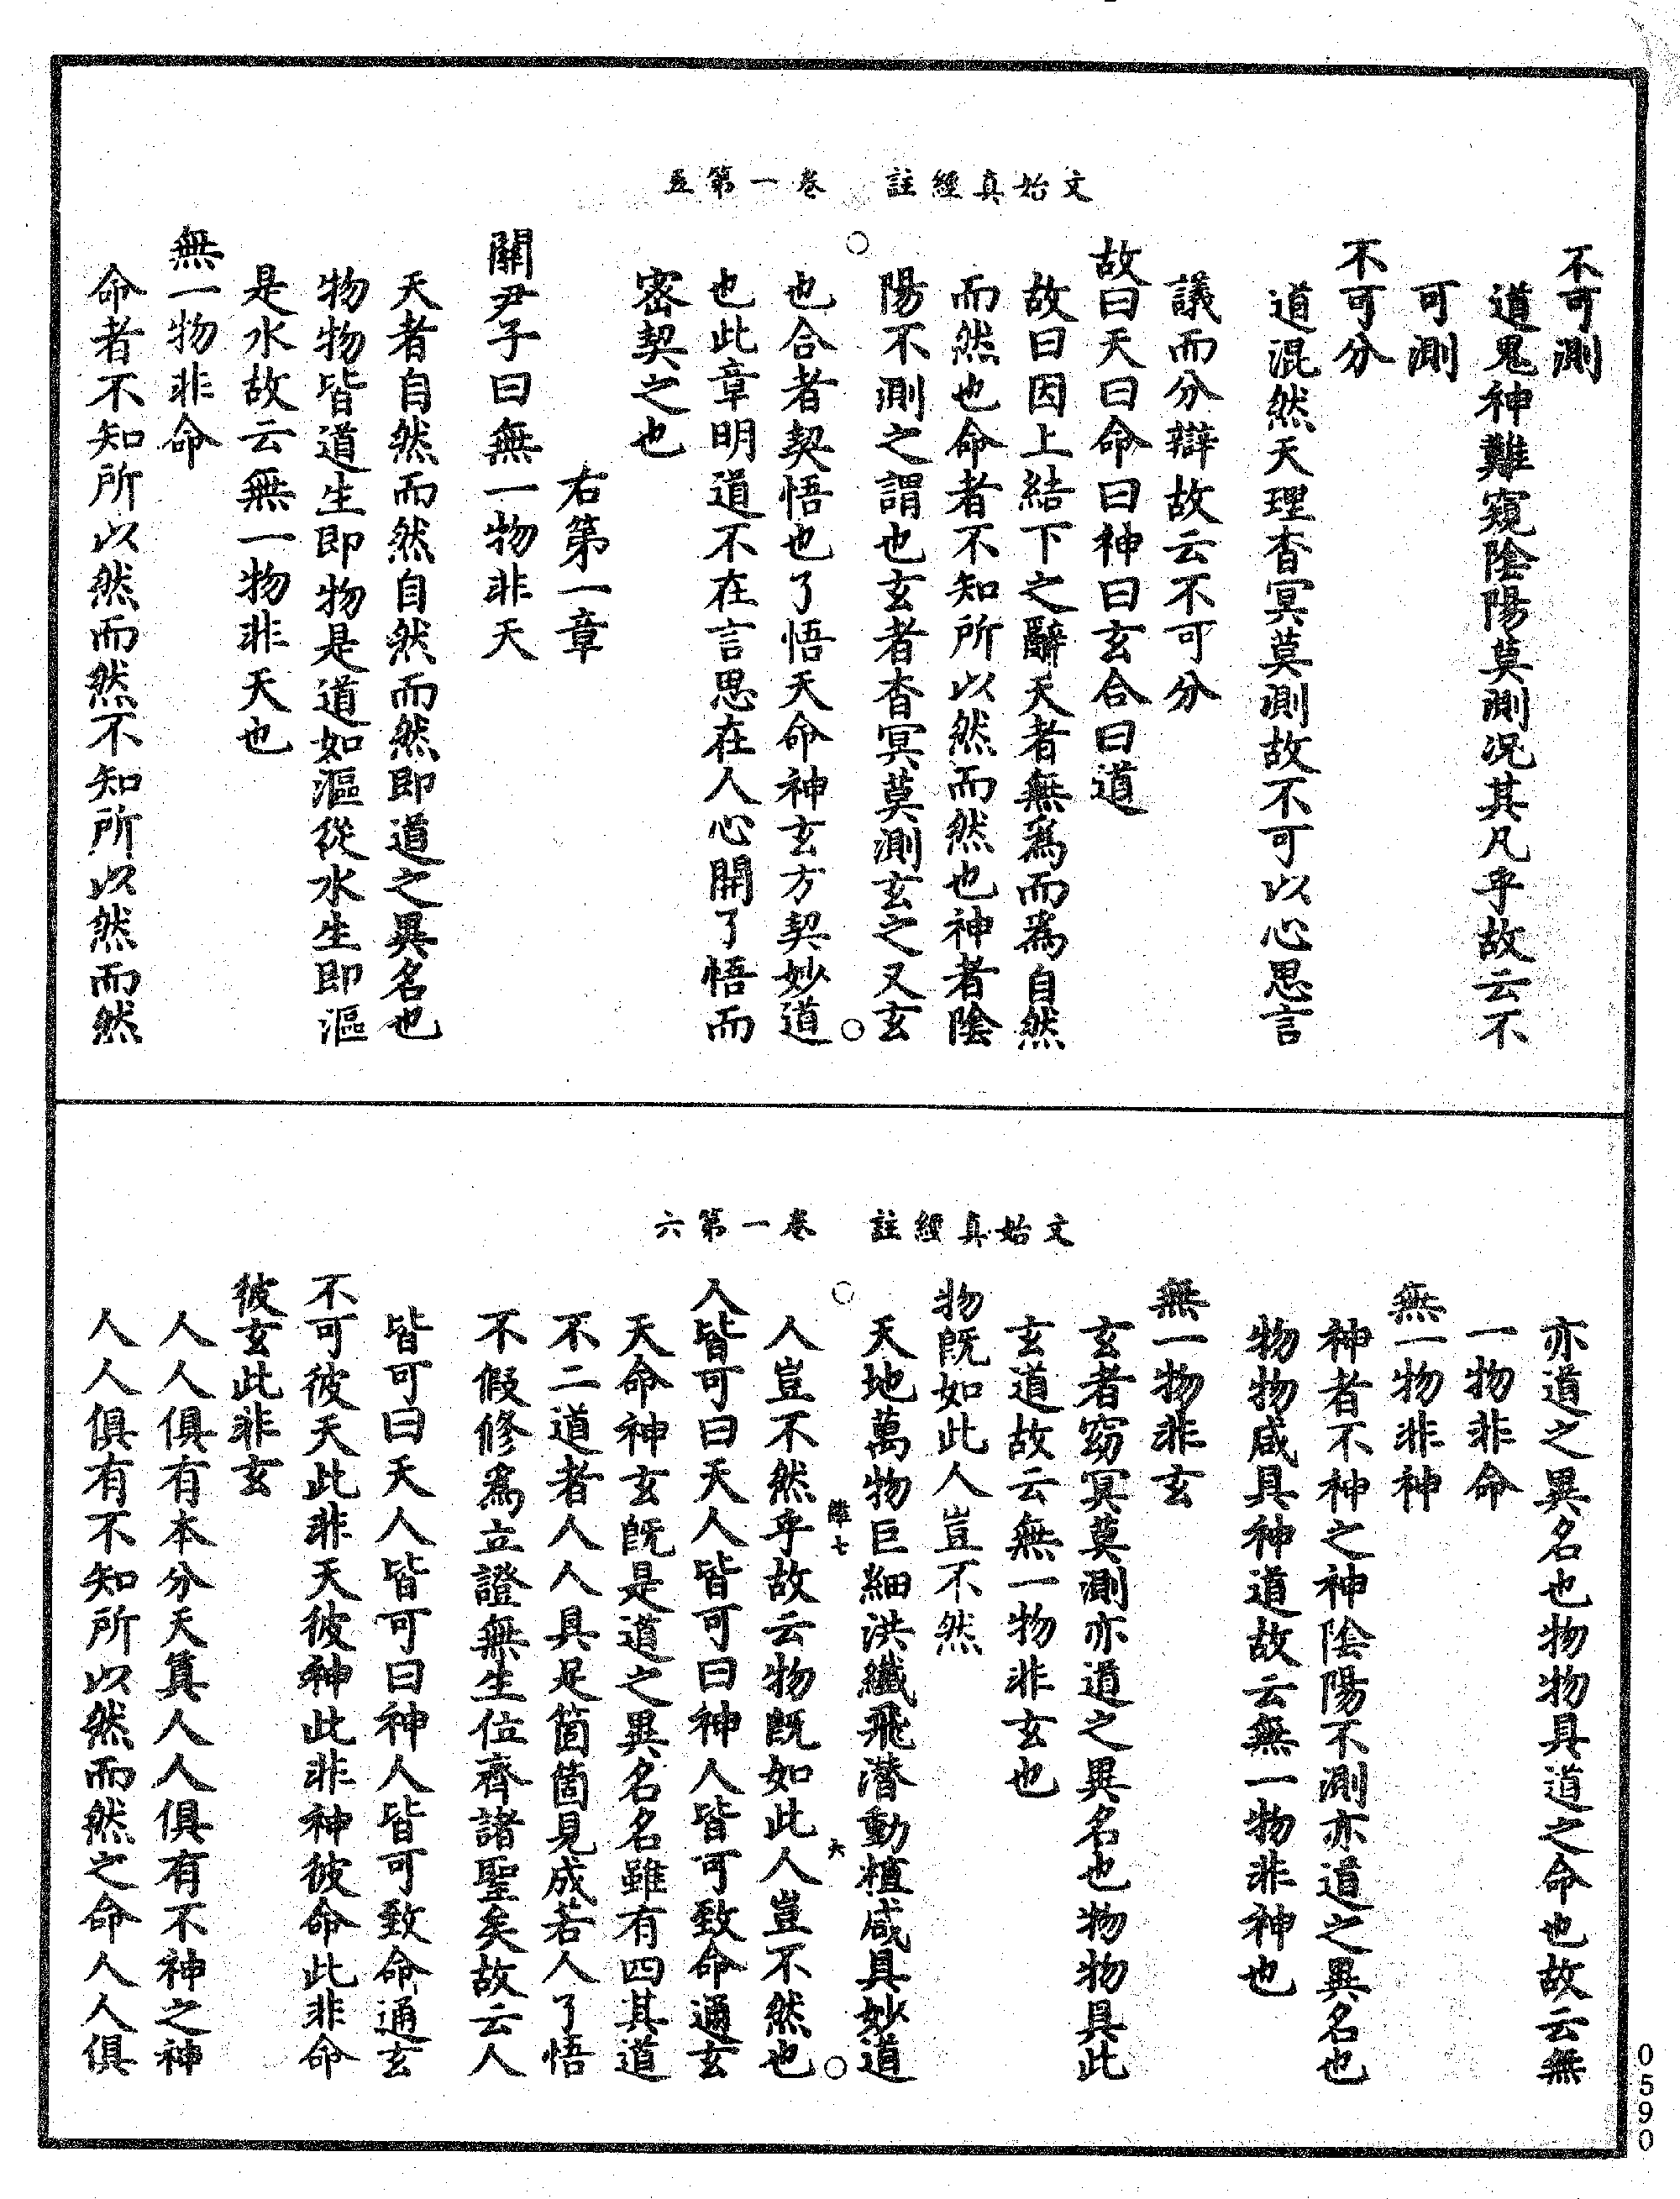 文始真經註　卷一第五
不可測
道鬼神難窺陰陽莫測况其凡乎故云不
可測
不可分
道混然天理杳冥莫測故不可以心思言
議而分辯故云不可分
故曰天曰命曰神曰玄合曰道
故曰因上結下之辭天者無為而為自然
而然也命者不知所以然而然也神者陰
陽不測之謂也玄者杳冥莫測玄之又玄
也合者契悟也了悟天命神玄方契妙道
也此章明道不在言思在人心開了悟而
密契之也
右第一章
關尹子曰無一物非天
天者自然而然自然而然即道之異名也
物物皆道生即物是道如漚從水生即漚
是水故云無一物非天也
無一物非命
命者不知所以然而然不知所以然而然
文始真經註　卷一第六
亦道之異名也物物具道之命也故云無
一物非命
無一物非神
神者不神之神陰陽不測亦道之異名也
物物咸具神道故云無一物非神也
無一物非玄
玄者窈冥莫測亦道之異名也物物具此
玄道故云無一物非玄也
物旣如此人豈不然
天地萬物巨細洪纖飛潛動植咸具妙道
人豈不然乎故云物旣如此人豈不然也
人皆可曰天人皆可曰神人皆可致命通玄
天命神玄旣是道之異名名雖有四其道
不二道者人人具足箇箇見成若人了悟
不假修為立證無生位齊諸聖矣故云人
皆可曰天人皆可曰神人皆可致命通玄
不可彼天此非天彼神此非神彼命此非命
彼玄此非玄
人人俱有本分天真人人俱有不神之神
人人俱有不知所以然而然之命人人俱
0590